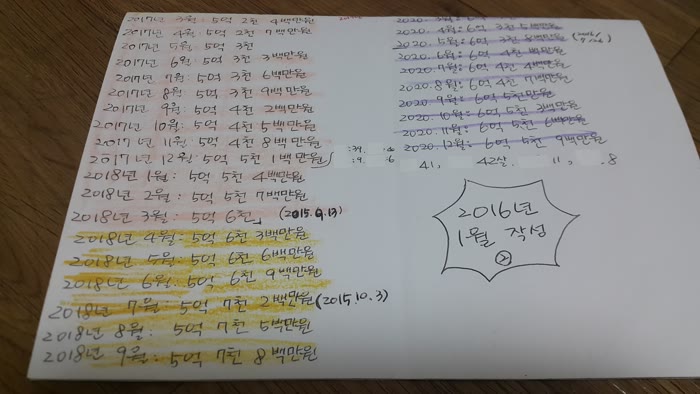 2017년 3월: 5억 2천 4백만원
2017년 4월: 5억 2천 7백만원
2017년 5월: 5억 3천
2017년 6월: 5억 3천 3백만원
2017년 7월: 5억 3천 6백만원
2017년 8월: 5억 3천 9백만원
2017년 9월: 5억 4천 2백만원
2017년 10월: 5억 4천 5백만원
2017년 11월: 5억 4천 8백만원
2017년 12월: 5억 5천 1백만원
2018년 1월: 5억 5천 4백만원
2018년 2월: 5억 5천 7백만원
2018년 3월: 5억 6천 (2015.9.13)
2018년 4월: 5억 6천 3백만원
2018년 5월: 5억 6천 6백만원
2018년 6월: 5억 6천 9백만원
2018년 7월: 5억 7천 2백만원 (2015.10.3)
2018년 8월: 5억 7천 5백만원
2018년 9월: 5억 7천 8백만원
2020.4월: 6억 3천 5백만원
2020.5월: 6억 3천 8백만원
2020.6월: 6억 4천 백만원
2020.7월: 6억 4천 4백만원
2020.8월: 6억 4천 7백만원
2020.9월: 6억 5천만원
2020.10월: 6억 5천 3백만원
2020.11월: 6억 5천 6백만원
2020.12월: 6억 5천 9백만원
41, 42살 11, .8
2016년
1월 작성